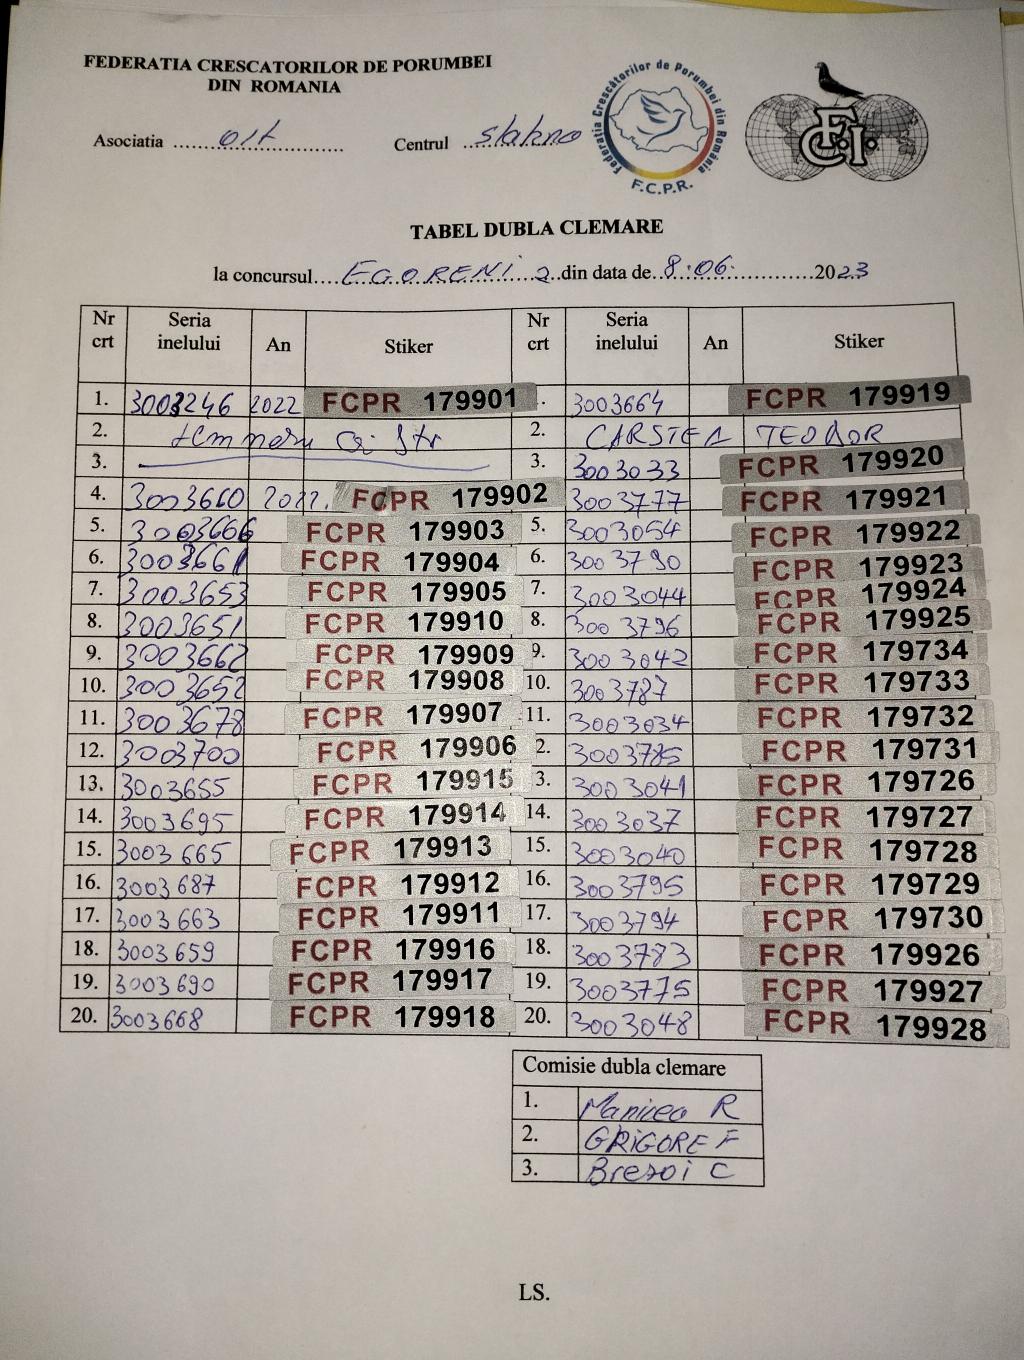 FEDERATIA CRESCATORILOR DE PORUMBEI
DIN ROMANIA
Federatia Crescătorilor de Porumbei din România
F.C.P.R.
F.C.I.
Asociatia olt Centrul slatina
TABEL DUBLA CLEMARE
la concursul EGORENI 2 din data de 8.06. 2023
Nr crt Seria inelului An Stiker Nr crt Seria inelului An Stiker
1. 3003246 2022 FCPR 179901 . 3003664 FCPR 179919
2. 2. CARSTEA TEODOR
3. 3. 3003033 FCPR 179920
4. 3003660 2022. FCPR 179902 3003777 FCPR 179921
5. 3003666 FCPR 179903 5. 3003054 FCPR 179922
6. 3003661 FCPR 179904 6. 3003790 FCPR 179923
7. 3003653 FCPR 179905 7. 3003044 FCPR 179924
8. 3003651 FCPR 179910 8. 3003796 FCPR 179925
9. 3003662 FCPR 179909 9. 3003042 FCPR 179734
10. 3003652 FCPR 179908 10. 3003787 FCPR 179733
11. 3003678 FCPR 179907 11. 3003034 FCPR 179732
12. 3003700 FCPR 179906 2. 3003785 FCPR 179731
13. 3003655 FCPR 179915 3. 3003041 FCPR 179726
14. 3003695 FCPR 179914 14. 3003037 FCPR 179727
15. 3003665 FCPR 179913 15. 3003040 FCPR 179728
16. 3003687 FCPR 179912 16. 3003795 FCPR 179729
17. 3003663 FCPR 179911 17. 3003794 FCPR 179730
18. 3003659 FCPR 179916 18. 3003783 FCPR 179926
19. 3003690 FCPR 179917 19. 3003775 FCPR 179927
20. 3003668 FCPR 179918 20. 3003048 FCPR 179928
Comisie dubla clemare
1. Manirea R
2. GRIGORE F
3. Brezoi C
LS.